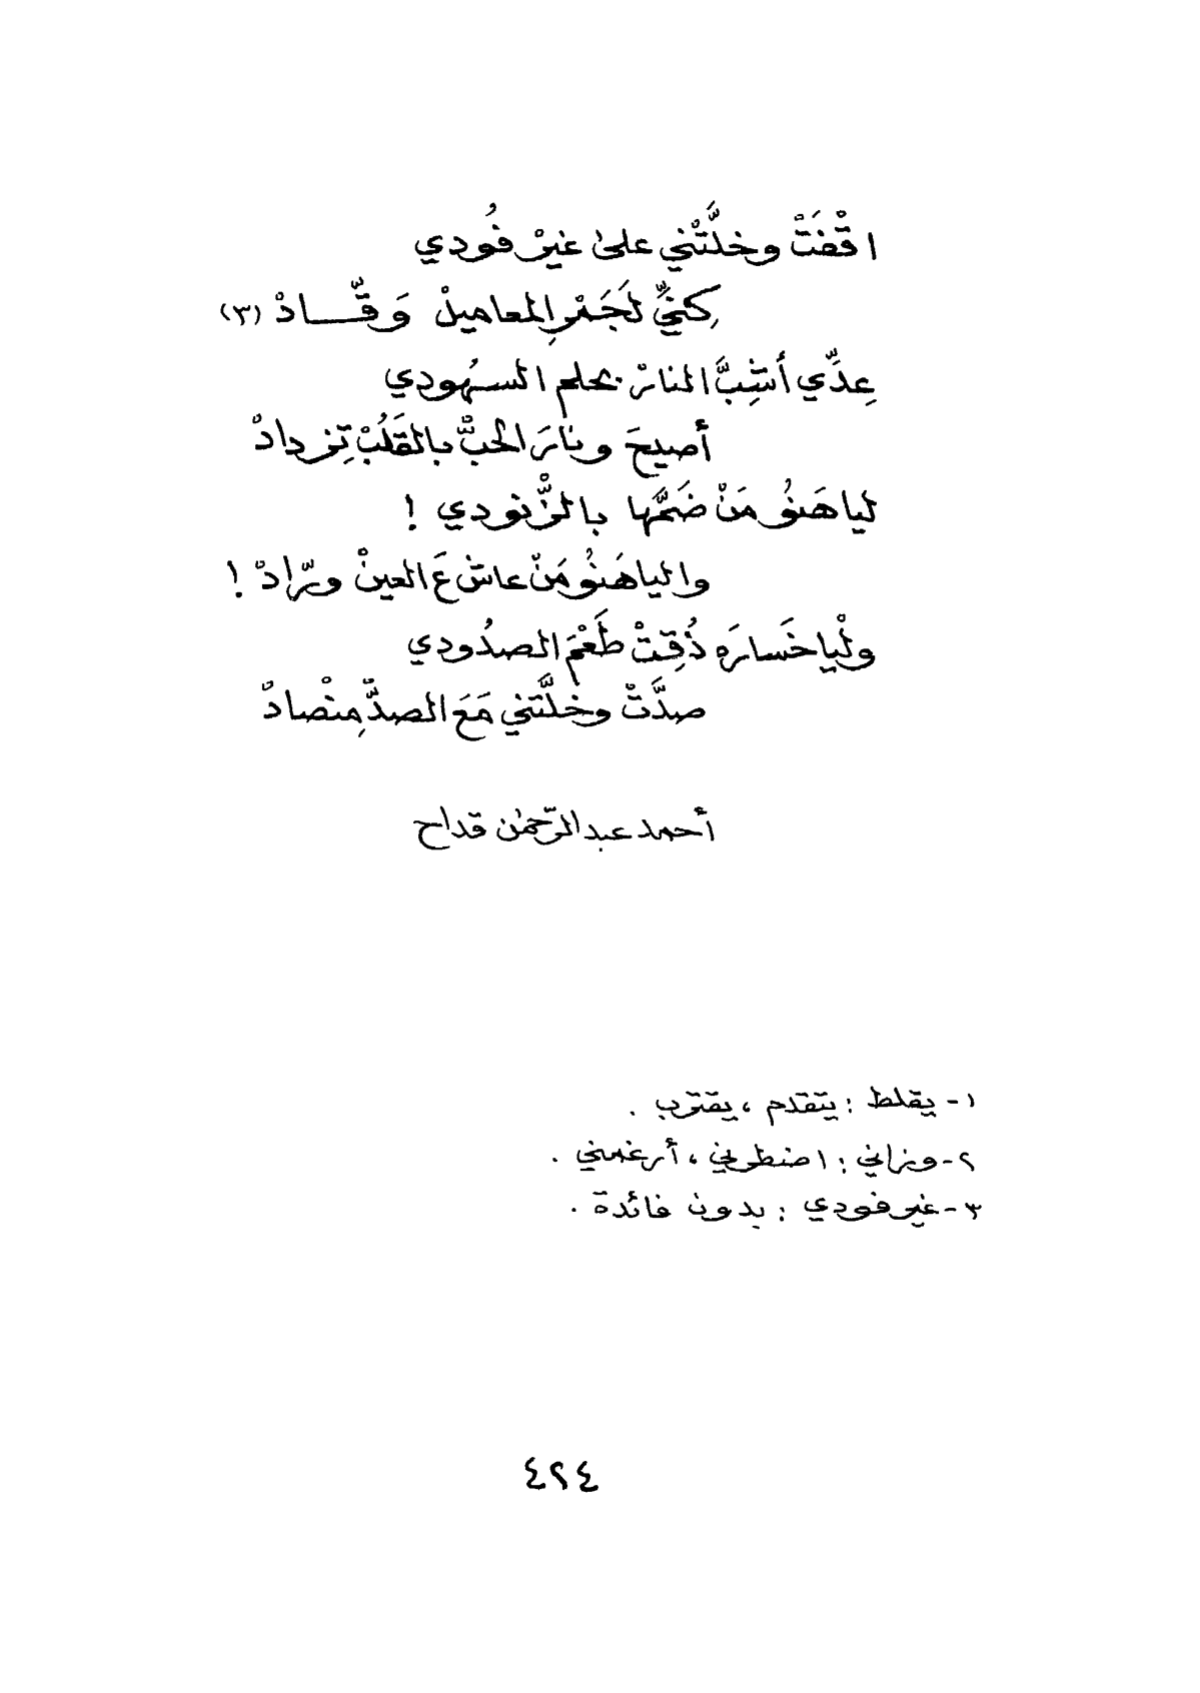 اقْفَتْ وخلَّتْني على غيرْ فُودي
كِنيّ لَجَمْرِ المعاميلْ وَقّـــادْ (٣)
عِدِّي أشِبَّ النارْ بحلم السهُودي
أصيحَ ونارَ الحبّْ بالقَلُبْ تِزدادْ
ليا هَنُو مَنْ ضَمَّها بالزّْنودي !
واليا هَنُو مَنْ عاش عَ العينْ ورّادْ !
ولْيا خَسارَه ذُقِتْ طَعْمَ الصدُودي
صدَّتْ وخلَّتني مَعَ الصدّْ مِنْصادْ
أحمد عبدالرّحمٰن قداح
١- يقلط : يتقدم ، يقترب .
٢- وزاني : اضطرني ، أرغمني .
٣- غير فودي : بدون فائدة .
٤٢٤